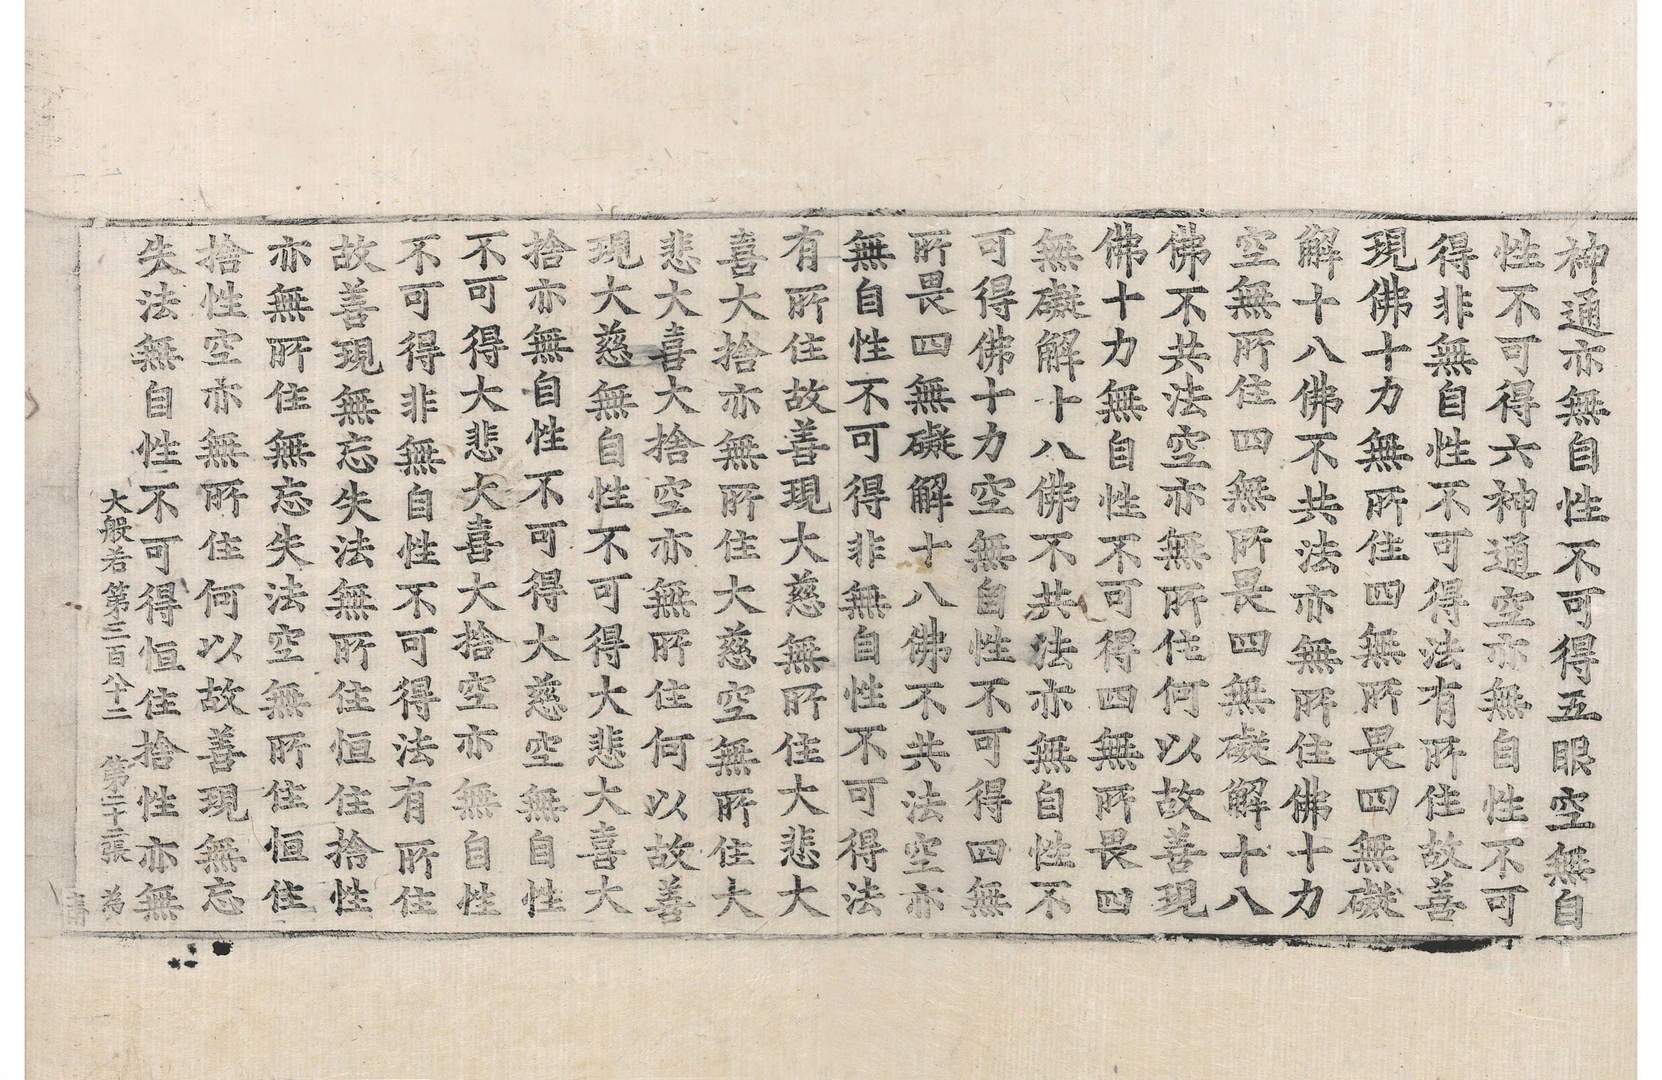 神通亦無自性不可得五眼空無自
性不可得六神通空亦無自性不可
得非無自性不可得法有所住故善
現佛十力無所住四無所畏四無礙
解十八佛不共法亦無所住佛十力
空無所住四無所畏四無礙解十八
佛不共法空亦無所住何以故善現
佛十力無自性不可得四無所畏四
無礙解十八佛不共法亦無自性不
可得佛十力空無自性不可得四無
所畏四無礙解十八佛不共法空亦
無自性不可得非無自性不可得法
有所住故善現大慈無所住大悲大
喜大捨亦無所住大慈空無所住大
悲大喜大捨空亦無所住何以故善
現大慈無自性不可得大悲大喜大
捨亦無自性不可得大慈空無自性
不可得大悲大喜大捨空亦無自性
不可得非無自性不可得法有所住
故善現無忘失法無所住恒住捨性
亦無所住無忘失法空無所住恒住
捨性空亦無所住何以故善現無忘
失法無自性不可得恒住捨性亦無
大般若第三百八十二 第二十三張 為